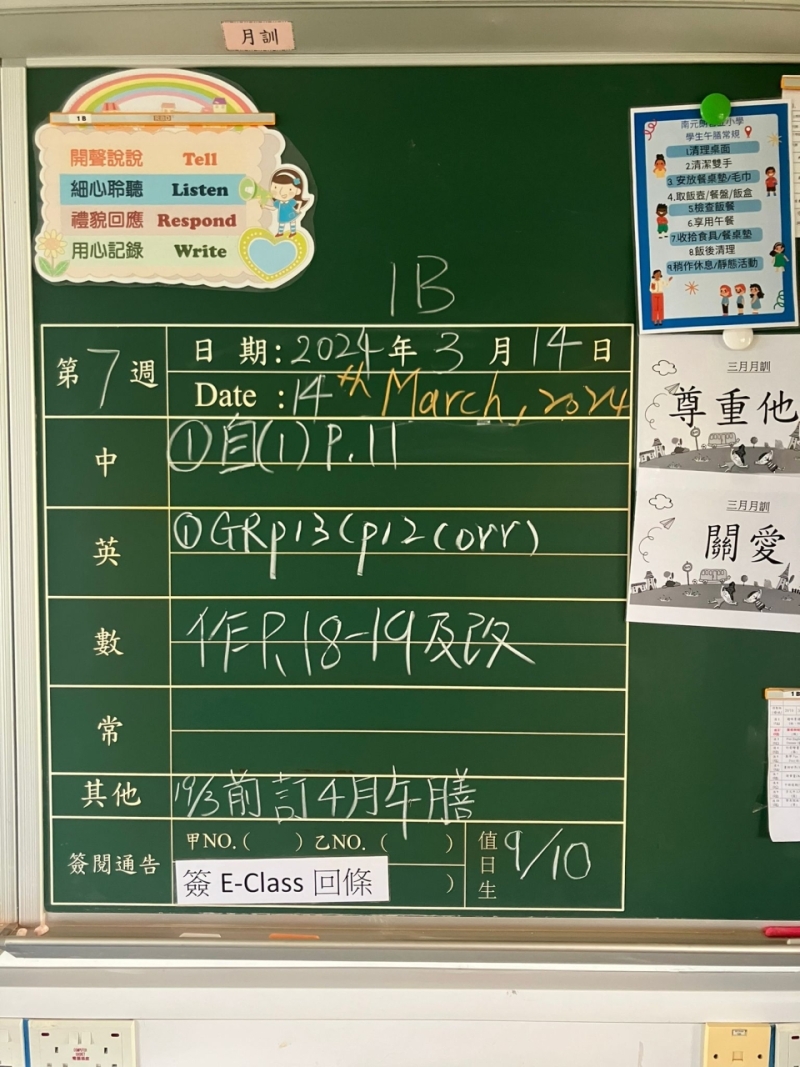 月訓
1B
開聲說說 Tell
細心聆聽 Listen
禮貌回應 Respond
用心記錄 Write
學生午膳常規
1.清理桌面
2.清潔雙手
3.安放餐桌墊/毛巾
4.取飯壺/餐盤/飯盒
5.檢查飯餐
6.享用午餐
7.收拾食具/餐桌墊
8.飯後清理
9.稍作休息/靜態活動
1B
第7週
日期:2024年3月14日
Date :14th March, 2024
中 ①自(1)P.11
英 ①GRp13(p12corr)
數 作P.18-19及改
常
其他 19/3前訂4月午膳
簽閱通告 甲NO.( ) 乙NO.( )
簽 E-Class 回條 )
值日生 9/10
三月月訓
尊重他
三月月訓
關愛